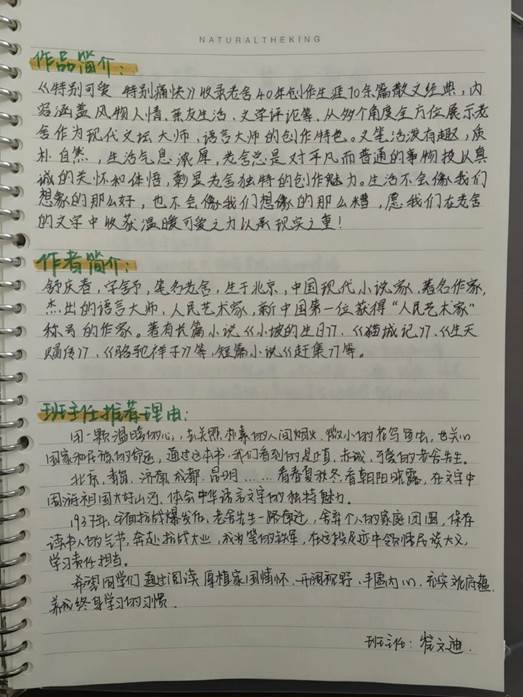 NATURALTHEKING
作品简介：
《特别可爱 特别痛快》收录老舍40年创作生涯70余篇散文经典，内
容涵盖风物人情、亲友生活、文学评论等，从多个角度全方位展示老
舍作为现代文坛大师、语言大师的创作特色。文笔活泼有趣，质
朴自然，生活气息浓厚，老舍总是对平凡而普通的事物投以真
诚的关怀和体悟，彰显老舍独特的创作魅力。生活不会像我们
想象的那么好，也不会像我们想像的那么糟，愿我们在老舍
的文字中收获温暖可爱之力以承现实之重！
作者简介：
舒庆春，字舍予，笔名老舍，生于北京，中国现代小说家、著名作家，
杰出的语言大师，人民艺术家，新中国第一位获得“人民艺术家”
称号的作家。著有长篇小说《小坡的生日》、《猫城记》、《牛天
赐传》、《骆驼祥子》等，短篇小说《赶集》等。
班主任推荐理由：
用一颗温暖的心，去关照朴素的人间烟火，微小的花鸟鱼虫，也关心
国家和民族的命运，通过这本书，我们看到的是正直、赤诚、可爱的老舍先生。
北京、青岛、济南、成都、昆明……看春夏秋冬看朝阳晚霞，在文字中
围游祖国大好山河，体会中华语言文字的独特魅力。
1937年，全面抗战爆发后，老舍先生一路南迁，舍弃个人的家庭团圆，保存
读书人的气节，奔赴抗战大业，成为笔的铁军，在这段反恋中领悟民族大义，
学习责任担当。
希望同学们通过阅读厚植家国情怀、开阔视野、丰富内心、充实文化底蕴，
养成终身学习的习惯。
班主任：崔文迪